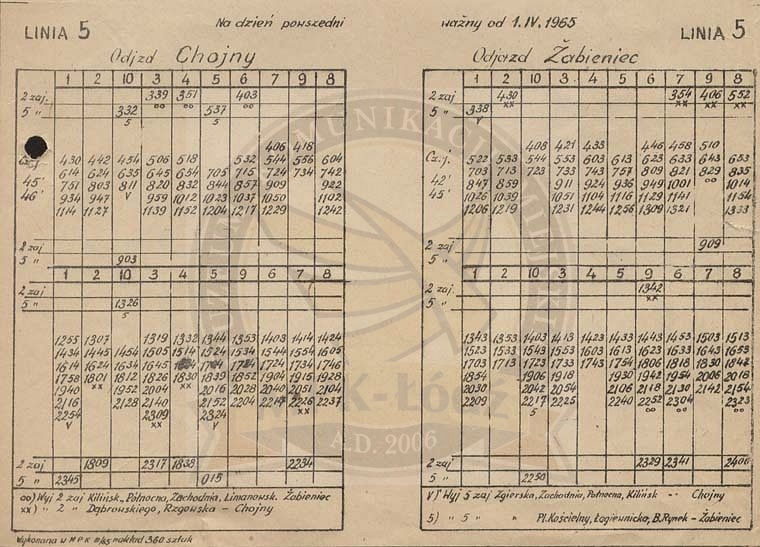 LINIA 5 Na dzień powszedni ważny od 1.IV.1965 LINIA 5
Odjzd Chojny
1 2 10 3 4 5 6 7 9 8
2 zaj. 339 351 403
oo oo oo
5 " 332 537
5 5
406 418
Cz.j. 430 442 454 506 518 532 544 556 604
614 624 635 645 654 705 715 724 734 742
45' 751 803 811 820 832 844 857 909 922
46' 934 947 V 959 1012 1023 1037 1050 1102
1114 1127 1139 1152 1204 1217 1229 1242
2 zaj
5 " 903
1 2 10 3 4 5 6 7 9 8
2 zaj
5 " 1326
5
1255 1307 1319 1332 1344 1353 1403 1414 1424
1434 1445 1454 1505 1514 1524 1534 1544 1554 1605
1614 1624 1634 1645 1724 1734 1746
1758 1801 1812 1826 1830 1839 1852 1904 1915 1928
1940 xx 1952 2004 xx 2016 2028 2040 2051 2104
2116 2128 2140 2152 2204 2217 2226 2237
2254 2309 2324 xx
V xx V
2 zaj 1809 2317 1838 2234
5 " 2345 015
oo) Wyj 2 zaj Kilińsk., Północna, Zachodnia, Limanowsk. Żabieniec
xx) " 2 " Dąbrowskiego, Rzgowska - Chojny
Wykonano w MPK nakład 360 sztuk
Odjazd Żabieniec
1 2 10 3 4 5 6 7 9 8
2 zaj 430 354 406 552
xx xx xx xx
5 " 338
V
408 421 433 446 458 510
Cz.j. 522 533 544 553 603 613 623 633 643 653
703 713 723 733 743 757 809 821 829 835
42' 847 859 911 924 936 949 1001 oo 1014
45' 1026 1039 1051 1104 1116 1129 1141 1154
1206 1219 1231 1244 1256 1309 1321 1333
2 zaj 909
5 "
1 2 10 3 4 5 6 9 7 8
2 zaj 1342
xx
5 "
1343 1353 1403 1413 1423 1433 1443 1453 1503 1513
1523 1533 1543 1553 1603 1613 1623 1633 1643 1653
1703 1713 1723 1733 1743 1754 1806 1818 1830 1842
1854 1906 1918 1930 1942 1954 2006 2018
2030 2042 2054 2106 2118 2130 2142 2154
2209 2217 2225 2240 2252 2304 2323
5 oo oo oo
2 zaj 2329 2341 2400
5 " 2250
V) Wyj 5 zaj Zgierska, Zachodnia, Północna, Kilińsk -- Chojny
5) " 5 " " Pl. Kościelny, Łagiewnicka, B. Rynek - Żabieniec
MPK-Łódź
A.D. 2006